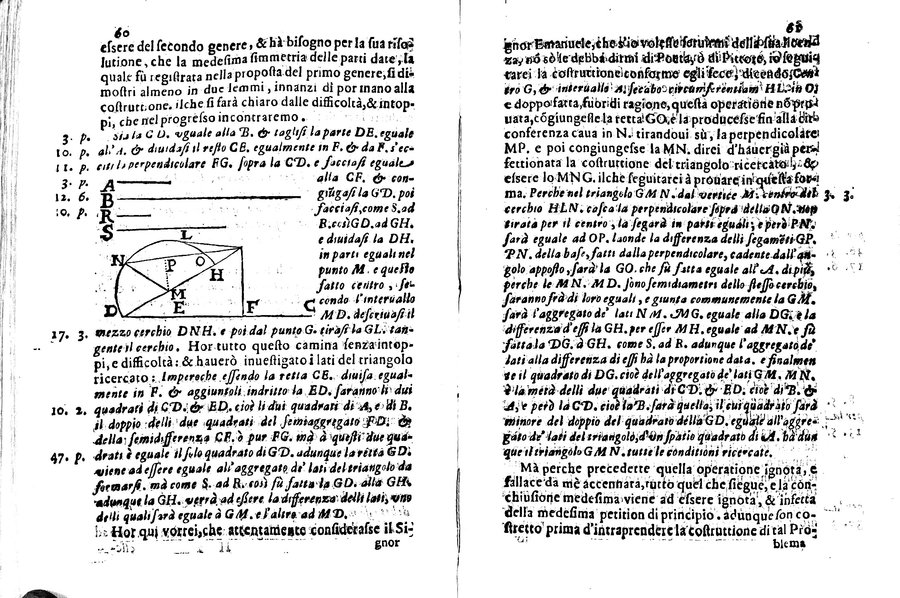 60
essere del secondo genere, & hà bisogno per la sua riso-
lutione, che la medesima simmetria delle parti date, la
quale fù registrata nella proposta del primo genere, si di-
mostri almeno in due lemmi, innanzi di por mano alla
costruttione. ilche si farà chiaro dalle difficoltà, & intop-
pi, che nel progresso incontraremo.
3. p. Sia la CD. vguale alla B. & taglisi la parte DE. eguale
10. p. all'A. & diuidasi il resto CE. egualmente in F. & da F. s'ec-
11. p. citi la perpendicolare FG. sopra la CD. e facciasi eguale
3. p. alla CF. & con-
12. 6. giũgasi la GD. poi
10. p. facciasi, come S. ad
R. così GD. ad GH.
e diuidasi la DH.
in parti eguali nel
punto M. e questo
fatto centro, se-
condo l'interuallo
MD. descriuasi il
A
B
R
S
L
N
P
O
H
M
D
E
F
C
17. 3. mezzo cerchio DNH. e poi dal punto G. tirasi la GL. tan-
gente il cerchio. Hor tutto questo camina senza intop-
pi, e difficoltà: & hauerò inuestigato i lati del triangolo
ricercato: Imperoche essendo la retta CE. diuisa egual-
mente in F. & aggiuntoli indritto la ED. saranno li dui
10. 2. quadrati di CD. & ED. cioè li dui quadrati di A, e di B.
il doppio delli due quadrati del semiaggregato FD. &
della semidifferenza CF. ò pur FG. mà à questi due qua-
47. p. drati è eguale il solo quadrato di GD. adunque la retta GD.
viene ad essere eguale all'aggregato de' lati del triangolo da
formarsi. mà come S. ad R. così fù fatta la GD. alla GH.
adunque la GH. verrà ad essere la differenza delli lati, uno
delli quali sarà eguale à GM. e l'altro ad MD.
Hor qui vorrei, che attentamente considerasse il Si-
gnor
gnor Emanuele, che s'io volesse seruirmi della sua licen-
za, nõ sò se debba dirmi di Poeta, ò di Pittore, io segui-
tarei la costruttione conforme egli fece, dicendo, Cen-
tro G, & interuallo A. fecabo circumferentiam HL. in O.
e doppo fatta, fuor di ragione, questa operatione nõ pro-
uata, cõgiungesse la retta GO. e la producesse fin alla cir-
conferenza caua in N. tirandoui sù, la perpendicolare
MP. e poi congiungesse la MN. direi d'hauer già per-
fettionata la costruttione del triangolo ricercato, &
essere lo MNG. ilche seguitarei à prouare in questa for-
ma. Perche nel triangolo GMN. dal vertice M. centro del 3. 3.
cerchio HLN. casca la perpendicolare sopra della ON. non
tirata per il centro, la segarà in parti eguali; e però PN.
sarà eguale ad OP. laonde la differenza delli segamẽti GP.
PN. della base, fatti dalla perpendicolare, cadente dall'an-
golo apposto, sarà la GO. che fù fatta eguale all'A. di più,
perche le MN. MD. sono semidiametri dello stesso cerchio,
saranno frà di loro eguali, e giunta communemente la GM.
sarà l'aggregato de' lati NM. MG. eguale alla DG. e la
differenza d'essi la GH. per esser MH. eguale ad MN. e fù
fatta la DG. à GH. come S. ad R. adunque l'aggregato de'
lati alla differenza di essi hà la proportione data. e finalmen-
te il quadrato di DG. cioè dell'aggregato de' lati GM. MN.
è la metà delli due quadrati di CD. & ED. cioè di B. &
A, e però la CD. cioè la B. sarà quella, il cui quadrato sarà
minore del doppio del quadrato della GD. eguale all'aggre-
gato de' lati del triangolo, d'un spatio quadrato di A. hà dun
que il triangolo GMN. tutte le conditioni ricercate.
Mà perche precedette quella operatione ignota, e
fallace da mè accennata, tutto quel che siegue, e la con-
chiusione medesima viene ad essere ignota, & infetta
della medesima petition di principio. adunque son co-
stretto prima d'intraprendere la costruttione di tal Pro-
blema